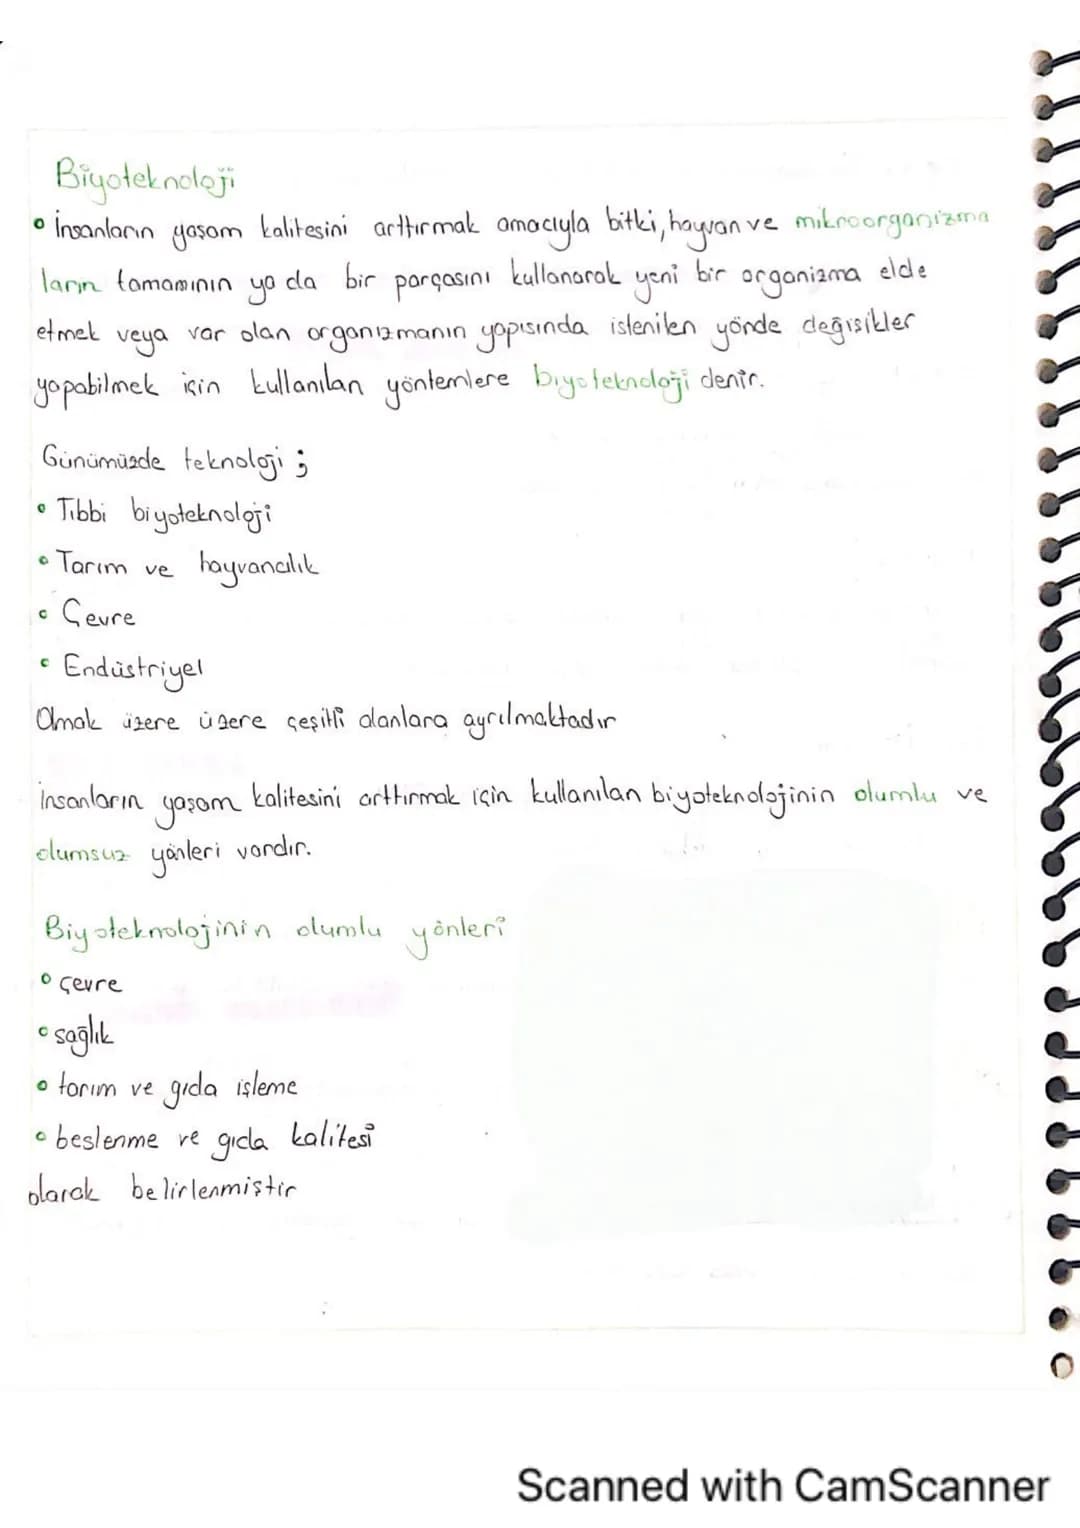 Biyoteknoloji
• İnsanların yaşam kalitesini arttırmak amacıyla bitki, hayvan ve mikroorganizma
ların tamamının ya da bir parçasını kullanarak yeni bir organizma elde
etmek veya var olan organizmanın yapısında istenilen yönde değişikler
yapabilmek için kullanılan yöntemlere biyoteknoloji denir.
Günümüzde teknoloji ;
• Tıbbi biyoteknoloji
• Tarım ve hayvancılık
• Çevre
• Endüstriyel
Olmak üzere üzere çeşitli alanlara ayrılmaktadır
insanların yaşam kalitesini arttırmak için kullanılan biyoteknolojinin olumlu ve
olumsuz yönleri vardır.
Biyoteknolojinin olumlu yönleri
• çevre
• sağlık
• tarım ve gıda işleme
• beslenme ve gıda kalitesi
olarak belirlenmiştir
Scanned with CamScanner